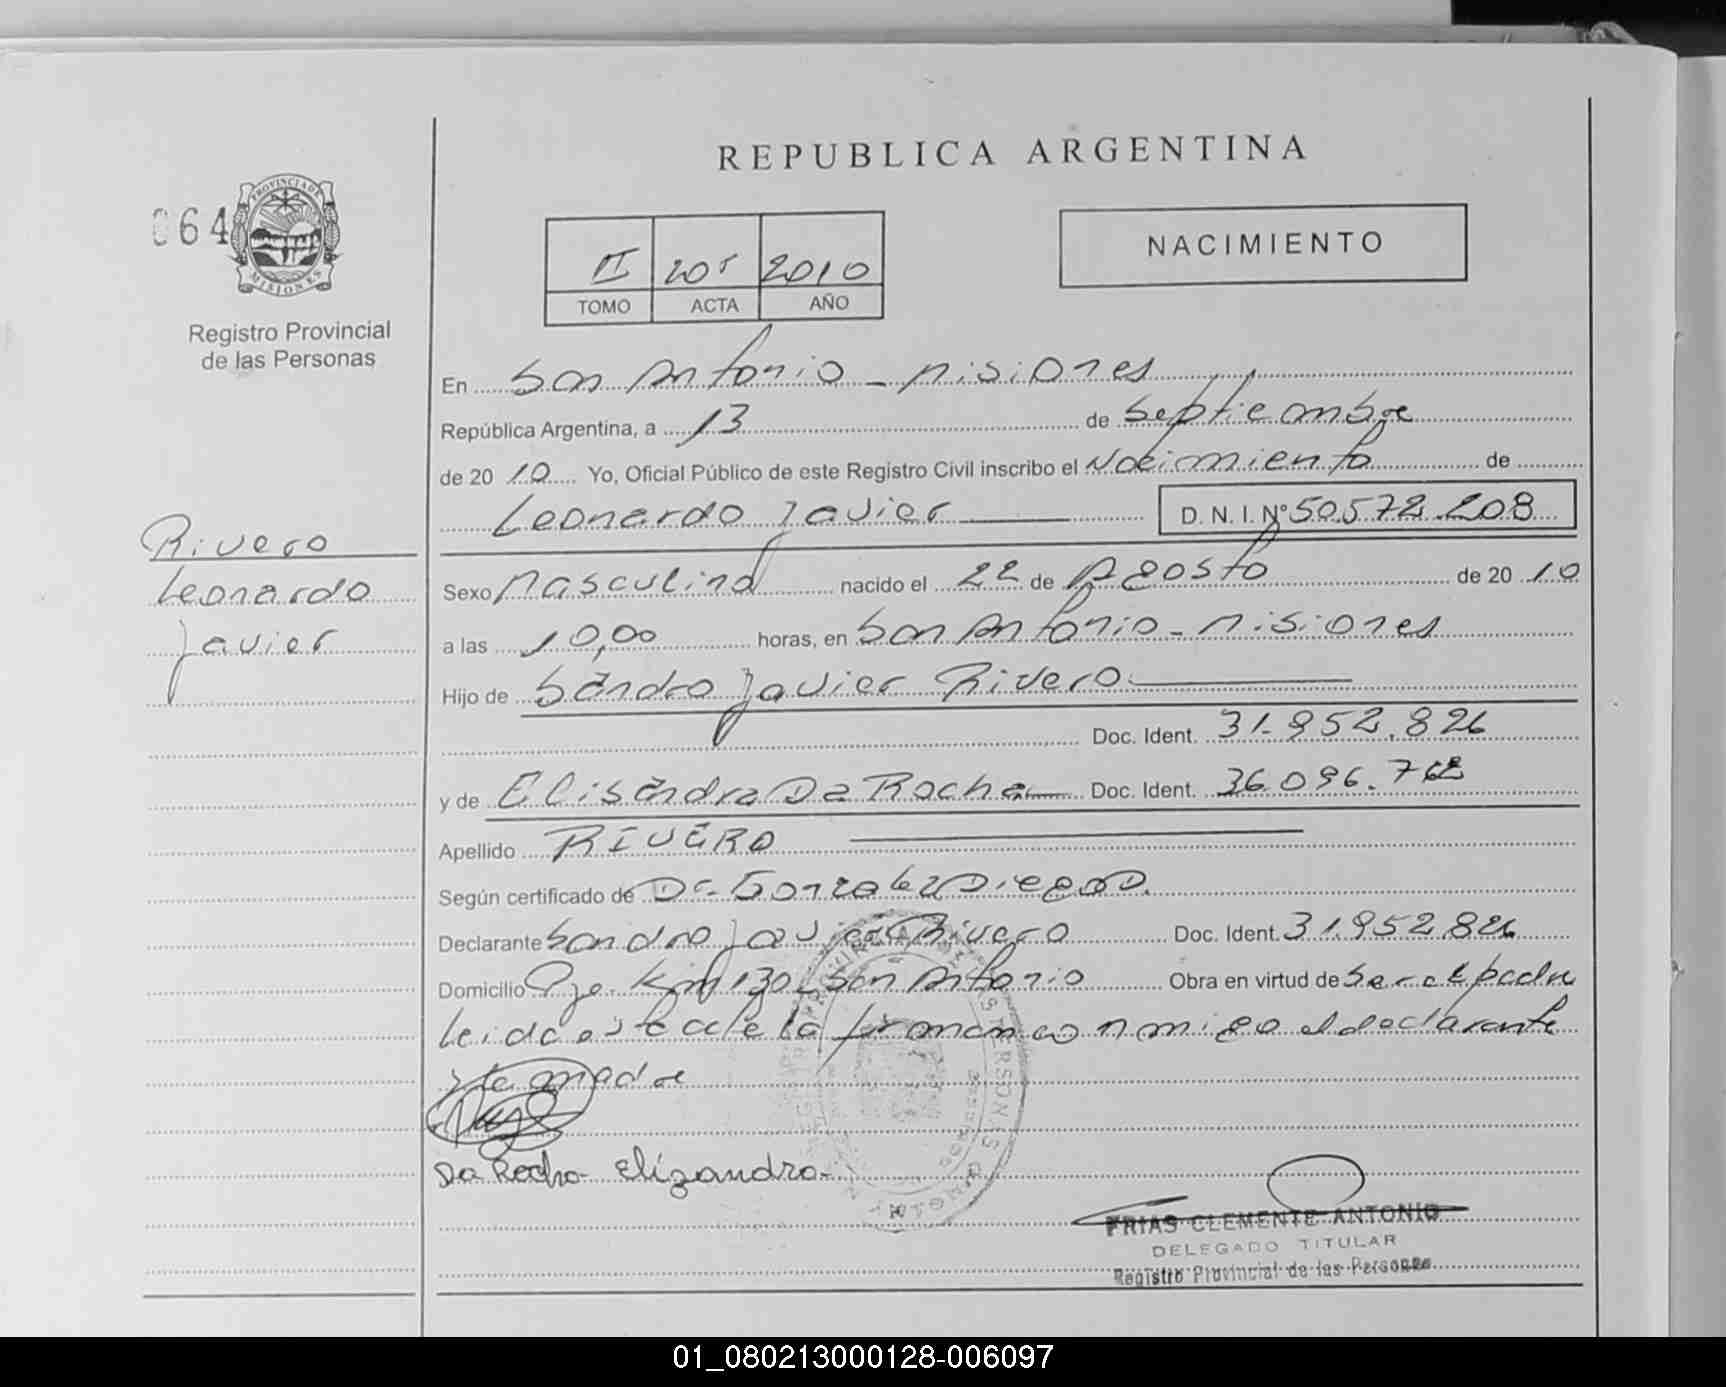 REPUBLICA ARGENTINA
064
PROVINCIA DE
MISIONES
Registro Provincial
de las Personas
II 205 2010
TOMO ACTA AÑO
NACIMIENTO
En San Antonio - Misiones
República Argentina, a 13 de Septiembre
de 20 10 Yo, Oficial Público de este Registro Civil inscribo el Nacimiento de
Leonardo Javier D. N. I. Nº 50.572.208
Rivero
Leonardo
Javier
Sexo Masculino nacido el 22 de Agosto de 20 10
a las 10,00 horas, en San Antonio - Misiones
Hijo de Sandro Javier Rivero
Doc. Ident. 31.952.826
y de Elisandra Da Rocha Doc. Ident. 36.096.762
Apellido RIVERO
Según certificado de Dr. Gonzalez Diego D.
Declarante Sandro Javier Rivero Doc. Ident. 31.952.826
Domicilio Pje. Km 130 - San Antonio Obra en virtud de Ser el padre
leida esta acta la firman conmigo el declarante
y la madre
Da Rocha Elizandra
FRIAS CLEMENTE ANTONIO
DELEGADO TITULAR
Registro Provincial de las Personas
01_080213000128-006097